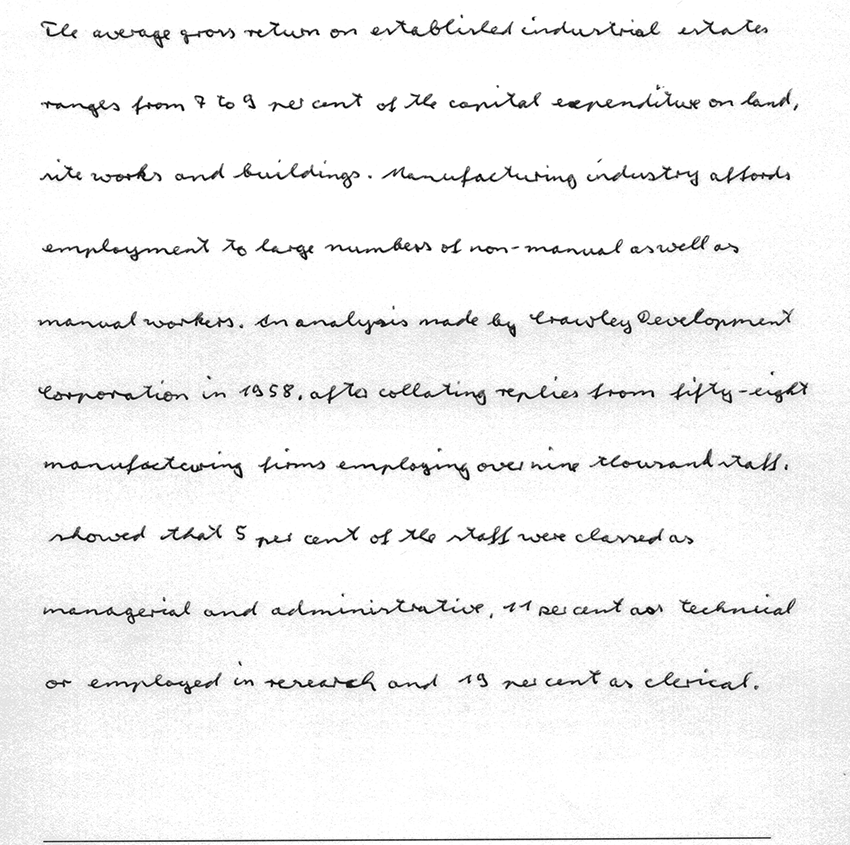 The average gross return on established industrial estates
ranges from 7 to 9 per cent of the capital expenditure on land,
site works and buildings. Manufacturing industry affords
employment to large numbers of non-manual as well as
manual workers. An analysis made by Crawley Development
Corporation in 1958, after collating replies from fifty-eight
manufacturing firms employing over nine thousand staff,
showed that 5 per cent of the staff were classed as
managerial and administrative, 11 per cent as technical
or employed in research and 19 per cent as clerical.